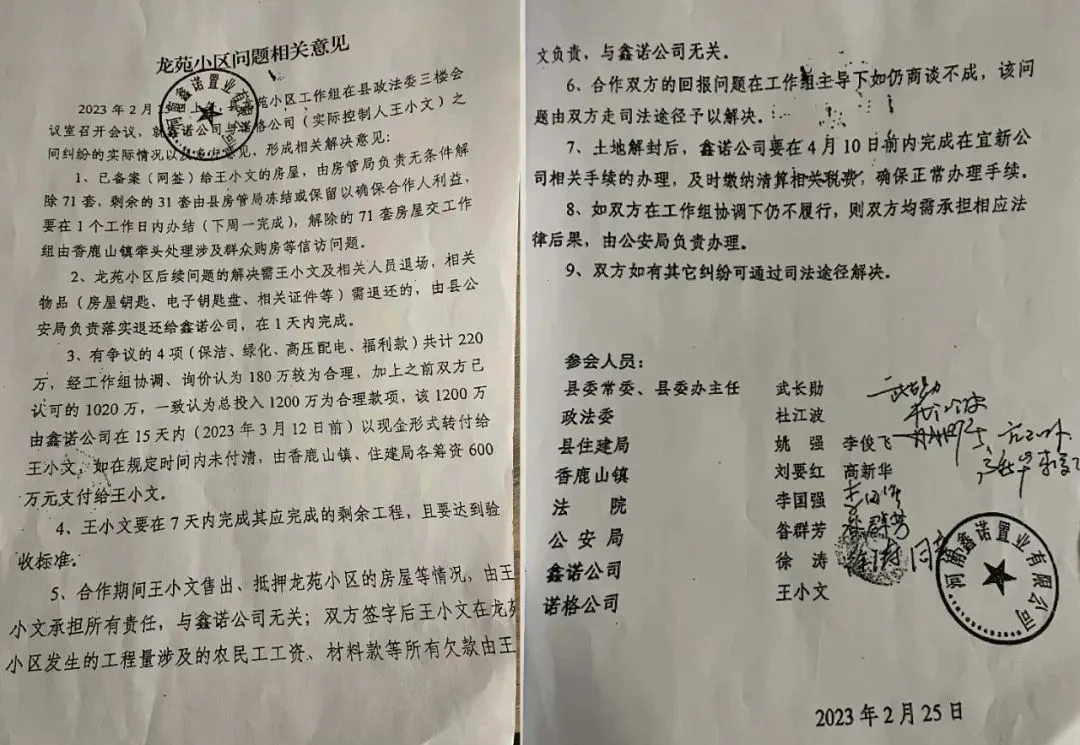 龙苑小区问题相关意见
2023年2月 县龙苑小区工作组在县政法委三楼会
议室召开会议，就鑫诺公司与诺格公司（实际控制人王小文）之
间纠纷的实际情况以及 意见，形成相关解决意见：
1、已备案（网签）给王小文的房屋，由房管局负责无条件解
除71套，剩余的31套由县房管局冻结或保留以确保合作人利益，
要在1个工作日内办结（下周一完成），解除的71套房屋交工作
组由香鹿山镇牵头处理涉及群众购房等信访问题。
2、龙苑小区后续问题的解决需王小文及相关人员退场，相关
物品（房屋钥匙、电子钥匙盘、相关证件等）需退还的，由县公
安局负责落实退还给鑫诺公司，在1天内完成。
3、有争议的4项（保洁、绿化、高压配电、福利款）共计220
万，经工作组协调、询价认为180万较为合理，加上之前双方已
认可的1020万，一致认为总投入1200万为合理款项，该1200万
由鑫诺公司在15天内（2023年3月12日前）以现金形式转付给
王小文，如在规定时间内未付清，由香鹿山镇、住建局各筹资600
万元支付给王小文。
4、王小文要在7天内完成其应完成的剩余工程，且要达到验
收标准。
5、合作期间王小文售出、抵押龙苑小区的房屋等情况，由王
小文承担所有责任，与鑫诺公司无关；双方签字后王小文在龙苑
小区发生的工程量涉及的农民工工资、材料款等所有欠款由王
文负责，与鑫诺公司无关。
6、合作双方的回报问题在工作组主导下如仍商谈不成，该问
题由双方走司法途径予以解决。
7、土地解封后，鑫诺公司要在4月10日前内完成在宜新公
司相关手续的办理，及时缴纳清算相关税费，确保正常办理手续。
8、如双方在工作组协调下仍不履行，则双方均需承担相应法
律后果，由公安局负责办理。
9、双方如有其它纠纷可通过司法途径解决。
参会人员：
县委常委、县委办主任 武长勋 武长勋
政法委 杜江波
县住建局 姚强 李俊飞
香鹿山镇 刘要红 高新华
法院 李国强
公安局 昝群芳 昝群芳
鑫诺公司 徐涛 徐涛 同意
诺格公司 王小文
河南鑫诺置业有限公司
2023年2月25日